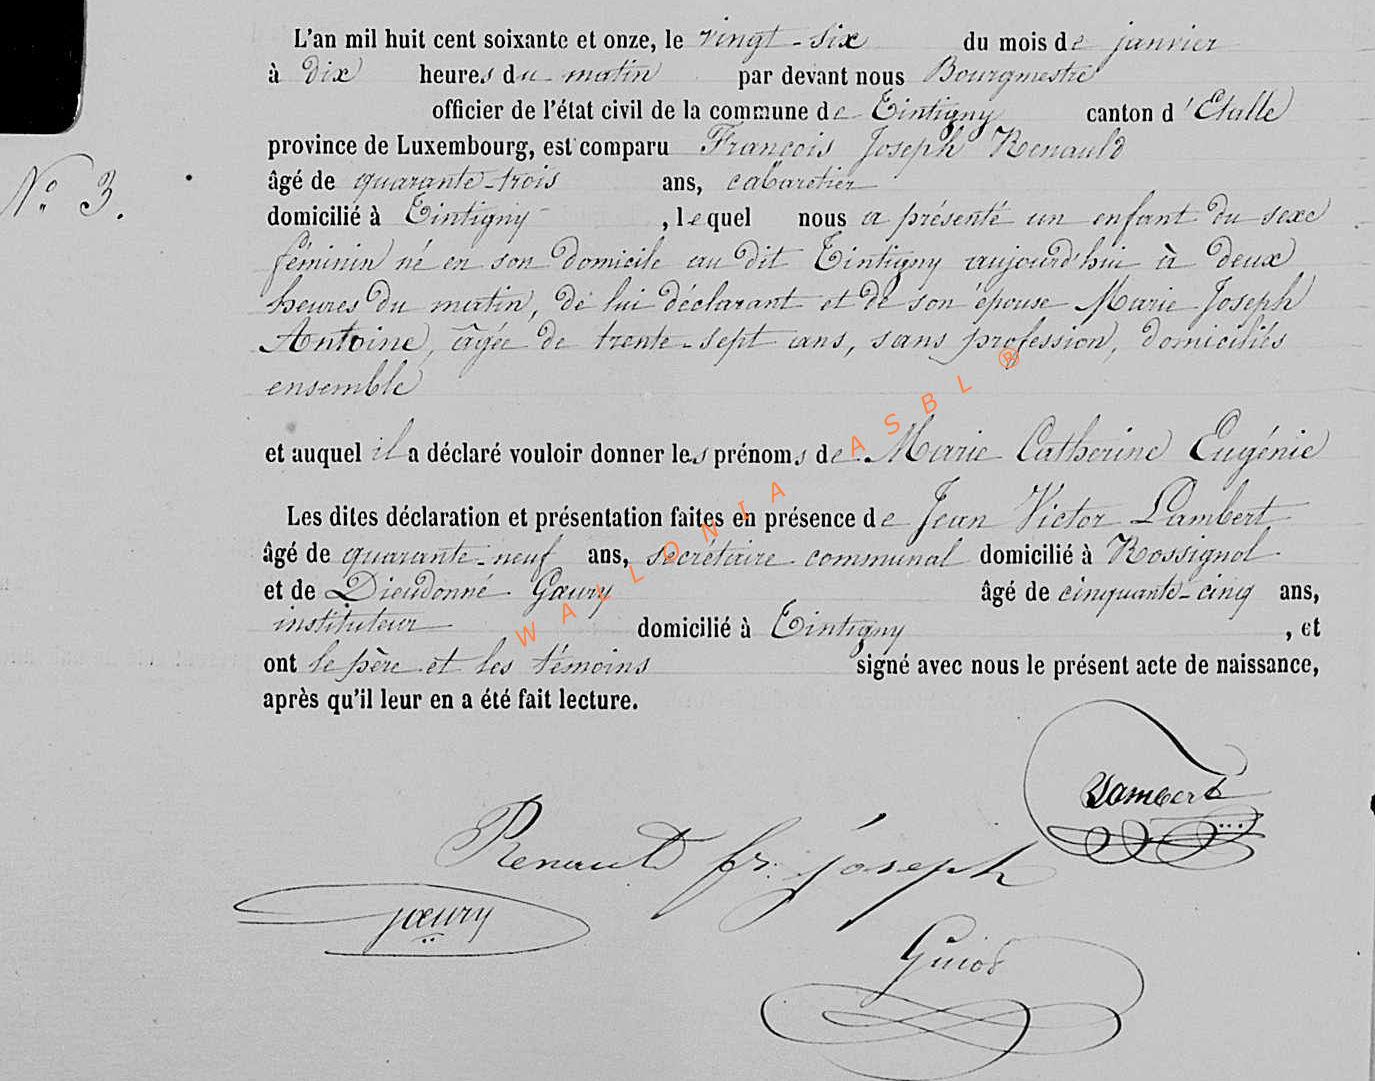 L'an mil huit cent soixante et onze, le vingt-six du mois de janvier
à dix heures du matin par devant nous Bourgmestre
officier de l'état civil de la commune de Tintigny canton d'Etalle
province de Luxembourg, est comparu François Joseph Renauld
N° 3.
âgé de quarante-trois ans, cabaretier
domicilié à Tintigny, lequel nous a présenté un enfant du sexe
féminin né en son domicile au dit Tintigny aujourd'hui à deux
heures du matin, de lui déclarant et de son épouse Marie Joseph
Antoine, âgée de trente-sept ans, sans profession, domiciliés
ensemble
et auquel il a déclaré vouloir donner les prénoms de Marie Catherine Eugénie
Les dites déclaration et présentation faites en présence de Jean Victor Lambert
âgé de quarante-neuf ans, secrétaire communal domicilié à Rossignol
et de Dieudonné Gœury âgé de cinquante-cinq ans,
instituteur domicilié à Tintigny, et
ont le père et les témoins signé avec nous le présent acte de naissance,
après qu'il leur en a été fait lecture.
Lambert
Renauld fr. joseph
Gœury
Guiot
WALLONIA ASBL ®